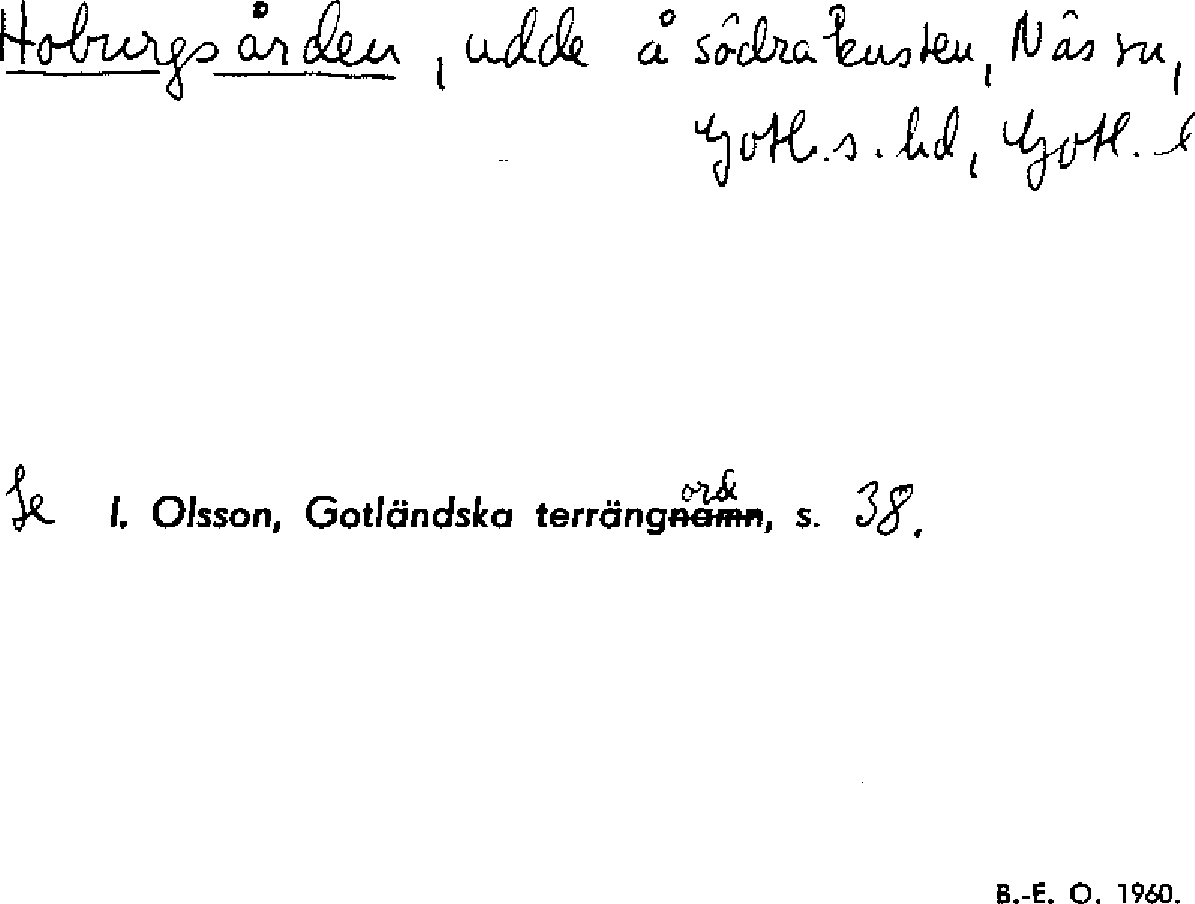 Hoburgsården, udde å södra kusten, Näs sn,
Gotl. s. hd, Gotl. l
Se I. Olsson, Gotländska terrängord, s. 38.
B.-E. O. 1960.